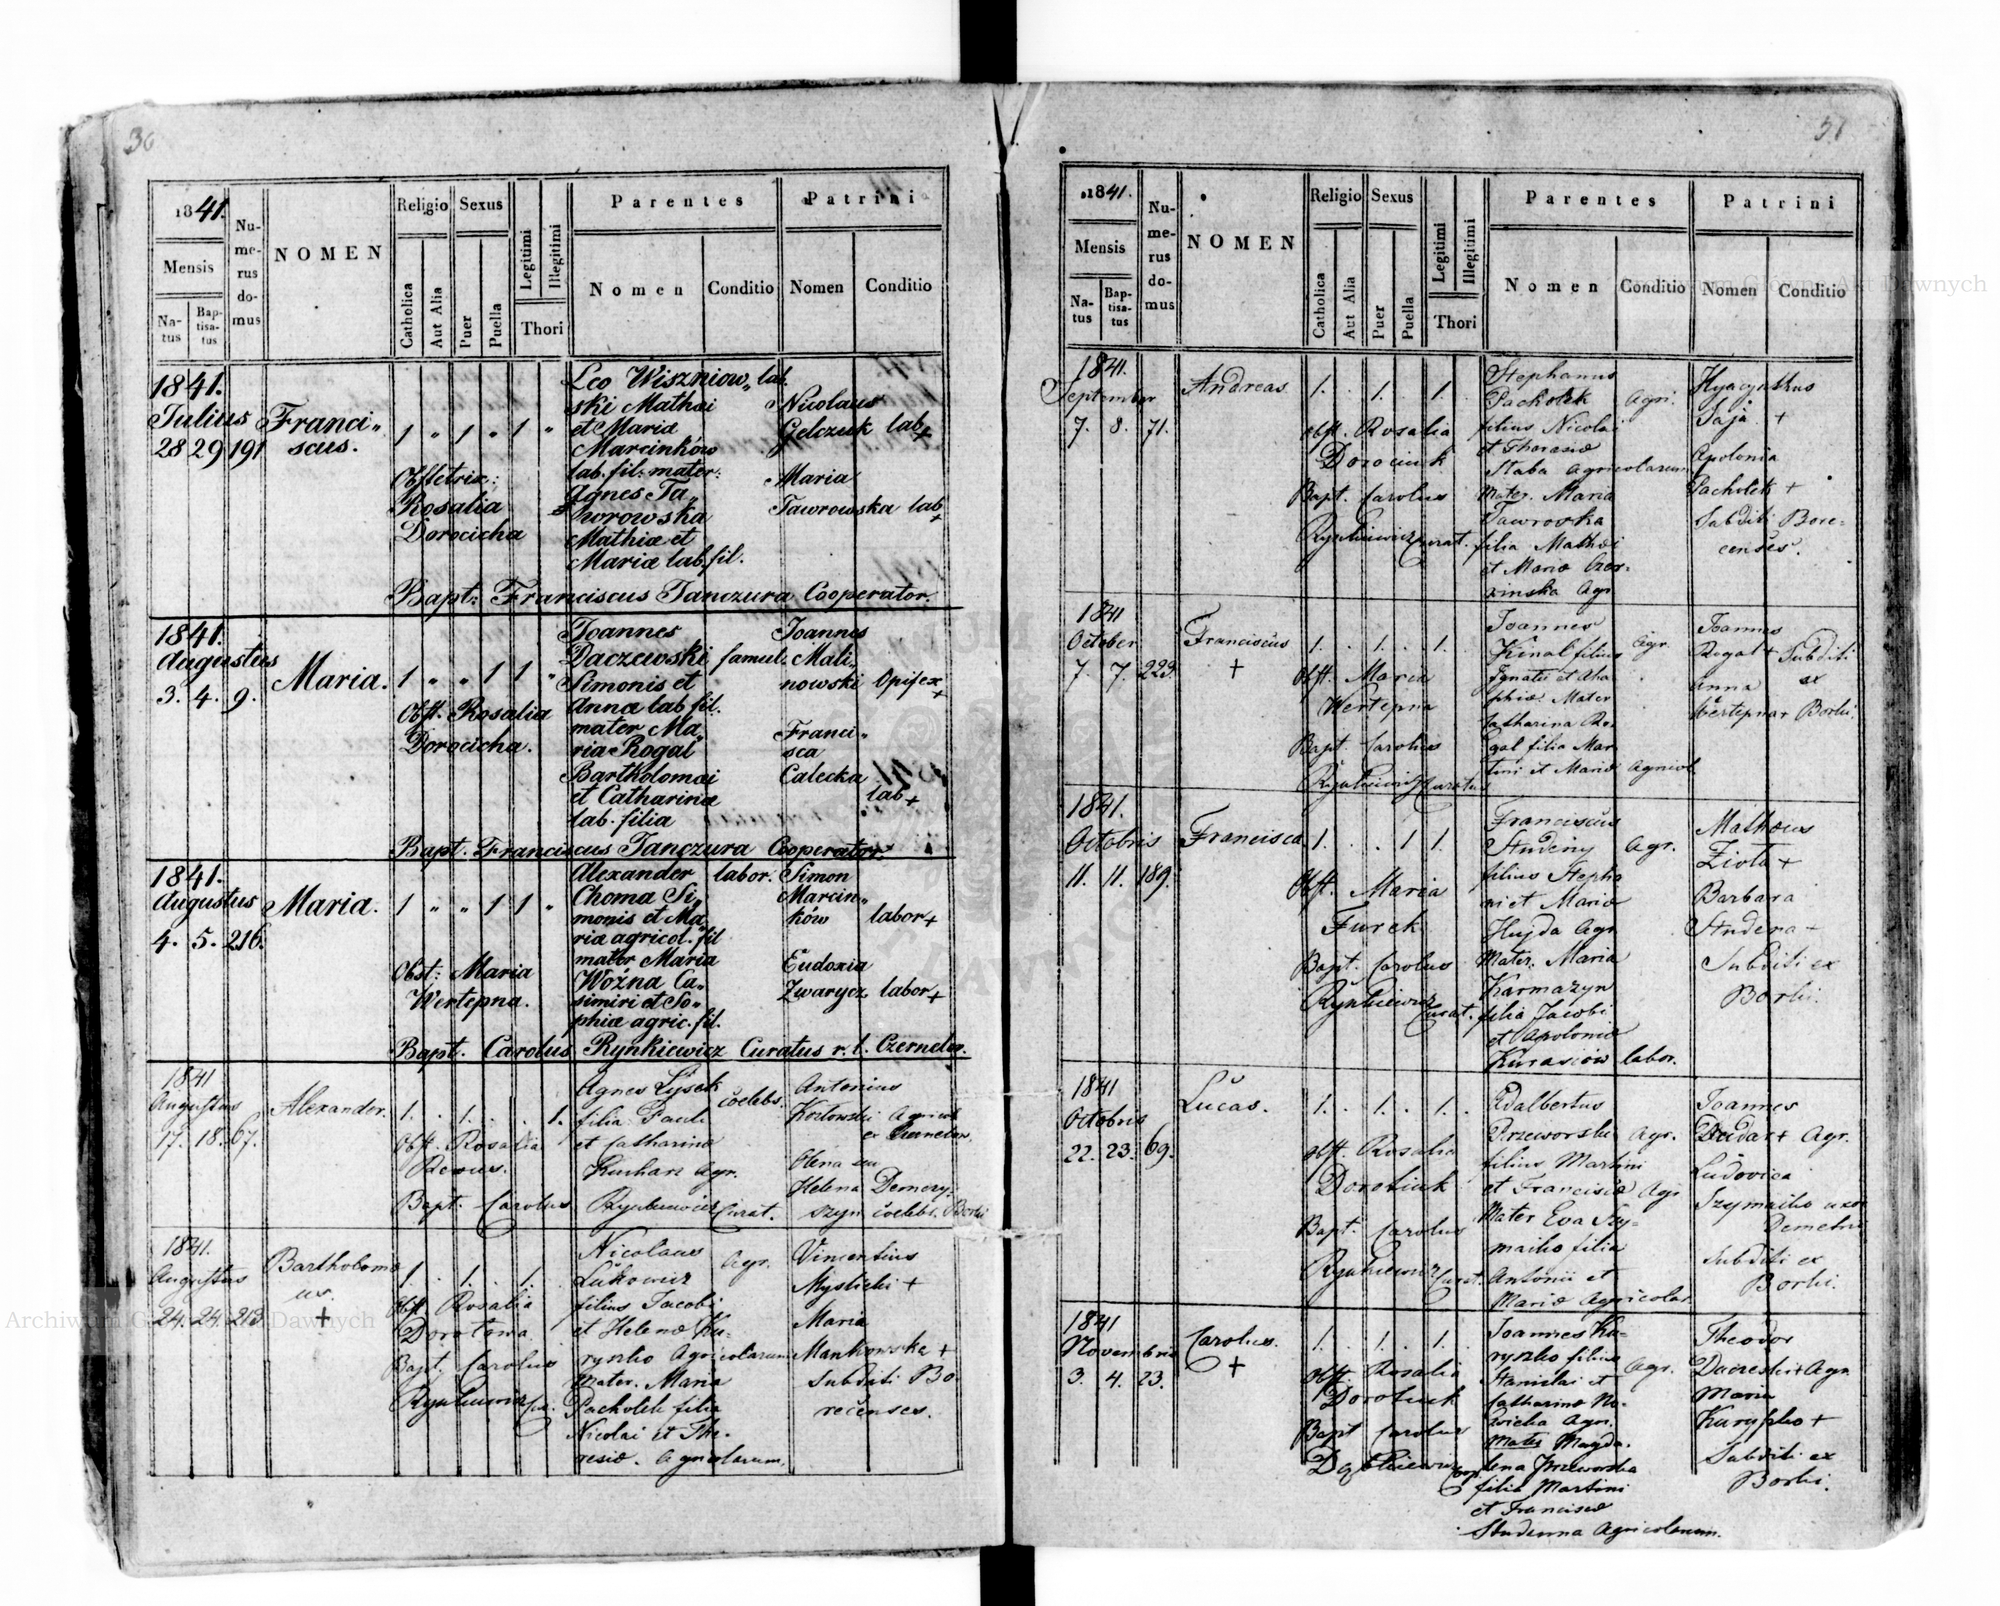 30
1841.
Mensis
Natus
Baptisatus
Numerus domus
NOMEN
Religio
Catholica
Aut Alia
Sexus
Puer
Puella
Legitimi
Illegitimi
Thori
Parentes
Nomen
Conditio
Patrini
Nomen
Conditio
1841.
Julius
28 29 191
Franci„
scus.
1 „ 1 „ 1 „
Obstetrix:
Rosalia
Dorocicha
Leo Wiszniow„ lab.
ski Mathæi
et Maria
Marcinków
lab. fil. mater:
Agnes Ta„
worowska
Mathiæ et
Mariæ lab. fil.
Nicolaus
Gelczuk lab +
Maria
Taworowska lab +
Bapt: Franciscus Tanczura Cooperator.
1841.
Augustus
3. 4. 9.
Maria.
1 „ „ 1 1 „
Obst. Rosalia
Dorocicha.
Joannes
Daczewski famul.
Simonis et
Annæ lab. fil.
mater Ma„
ria Rogal
Bartholomæi
et Catharinæ
lab. filia
Joannes
Mali„
nowski Opifex +
Franci„
sca
Calecka
lab +
Bapt. Franciscus Tanczura Cooperator.
1841.
Augustus
4. 5. 216.
Maria.
1 „ „ 1 1 „
Obst: Maria
Wertepna.
Alexander labor.
Choma Si„
monis et Ma„
riæ agricol. fil
mater Maria
Woźna Ca„
simiri et So„
phiæ agric. fil.
Simon
Marcin„
ków labor +
Eudoxia
Zwarycz labor +
Bapt. Carolus Rynkiewicz Curatus r. l. Czernelor.
1841
Augustus
17. 18. 67.
Alexander.
1. . 1. . . 1.
Obst. Rosalia
Agnes Lysek cœlebs.
filia Pauli
et Catharinæ
Kuchari Agr.
Antonius
Kozlowski Agricol
Helena Demery„
szyn. cœlebs. Borki
Bapt. Carolus Rynkiewicz Curat.
1841.
Augustus
24. 24. 213
Bartholomæ
us.
+
1. . 1. . 1.
Obst. Rosalia
Bapt. Carolus
Rynkiewicz Cur.
Nicolaus Agr.
Lukowicz
filius Jacobi
et Helenæ Ku-
ryszko Agricolarum
Mater. Maria
Pacholek filia
Nicolai et The-
resiæ. Agricolarum.
Vincentius
Myslicki +
Maria
Mankowska +
Subditi Bo-
recenses.
31
1841.
Mensis
Natus
Baptisatus
Numerus domus
NOMEN
Religio
Catholica
Aut Alia
Sexus
Puer
Puella
Legitimi
Illegitimi
Thori
Parentes
Nomen
Conditio
Patrini
Nomen
Conditio
1841.
September
7. 8. 71.
Andreas
1. . 1. . 1.
obst. Rosalia
Dorociuk
Bapt. Carolus
Rynkiewicz Curat.
Stephanus
Pacholek Agri.
filius Nicolai
et Theresiæ
Slaba Agricolarum
Mater. Maria
Tawrovska
filia Mathæi
et Mariæ
Agr
Hyacynthus
Saja +
Apolonia
Pacholek +
Subditi Bore-
censes.
1841
October
7. 7. 223.
Franciscus
+
1. . 1. . 1.
obst. Maria
Wertepna
Bapt. Carolus
Rynkiewicz Curatus
Joannes
Kinal filius Agr.
Ignatii et Aha-
phiæ Mater
Catharina Ro-
gal filia Mar-
tini et Mariæ Agricol.
Joannes
Rogal + Subditi
Anna ex
Wertepna + Borki.
1841.
Octobris
11. 11. 189.
Francisca.
1. . . 1 1.
Obst. Maria
Furek
Bapt. Carolus
Rynkiewicz Curat.
Franciscus
Studeny Agr.
filius Stepha
ni et Mariæ
Hujda Agr
Mater. Maria
Karmazyn
filia Jacobi
et Apoloniæ
Kurasiów labor.
Mathæus
Ziola +
Barbara
Studena +
Subditi ex
Borki.
1841
Octobris
22. 23. 69.
Lucas.
1. . 1. . 1. .
obst. Rosalia
Dorotiuk
Bapt. Carolus
Rynkiewicz Curat.
Adalbertus
Przeworski Agr.
filius Martini
et Franciscæ Agr
Mater Eva Szy-
mailo filia
Antonii et
Mariæ Agricolar.
Joannes
Dudar + Agr.
Ludovica
Szymailo uxor
Demetrii
Subditi ex
Borki.
1841
Novembris
3. 4. 23.
Carolus.
+
1. . 1. . 1.
obst. Rosalia
Dorotiuk
Bapt Carolus
Joannes Ku-
ryszko filius Agr.
Stanislai et
Catharinæ No-
wicka Agri.
Mater Magda-
lena Przeworska
filia Martini
et Franciscæ
Studenna Agricolarum.
Theodor
Daczeski + Agr.
Maria
Kuryszko +
Subditi ex
Borki.
Archiwum Główne Akt Dawnych